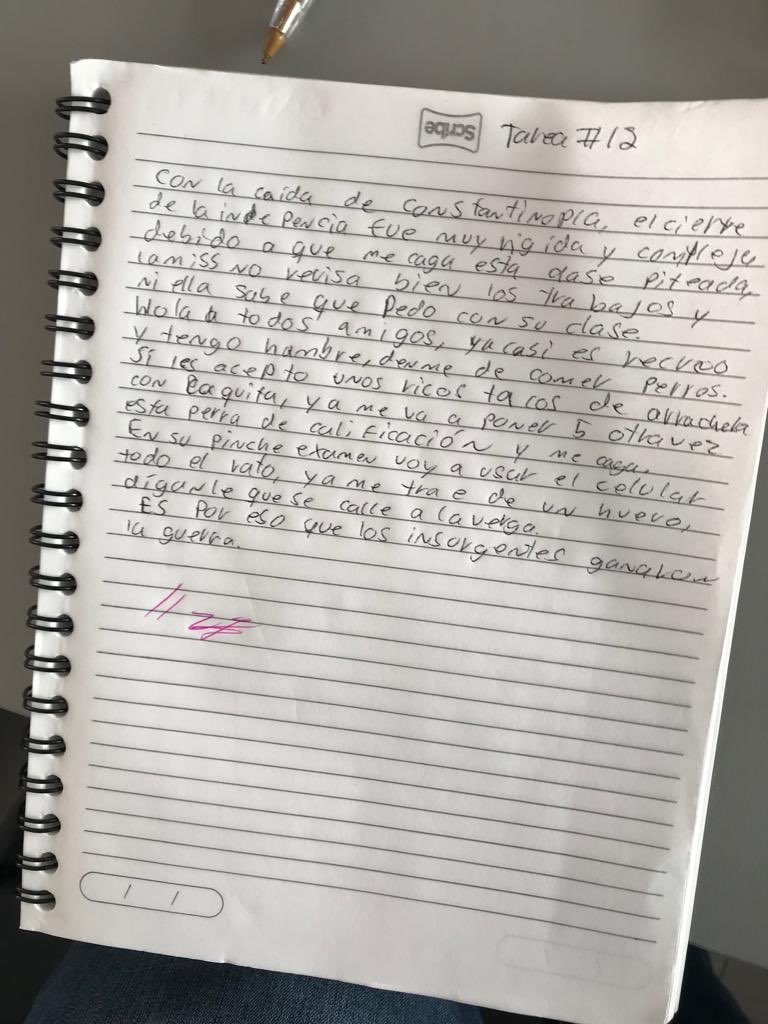 Scribe
Tarea #12
Con la caida de Constantinopla, el cierre
de la indepencia fue muy rigida y compleja
debido a que me caga esta clase piteada,
la miss no revisa bien los trabajos y
ni ella sabe que pedo con su clase.
Hola a todos amigos, ya casi es recreo
y tengo hambre, denme de comer perros.
Si les acepto unos ricos tacos de arrachera
con Coquita, ya me va a poner 5 otra vez
esta perra de calificación y me caga.
En su pinche examen voy a usar el celular
todo el rato, ya me trae de un huevo,
diganle que se calle a la verga.
Es por eso que los insurgentes ganaron
la guerra.